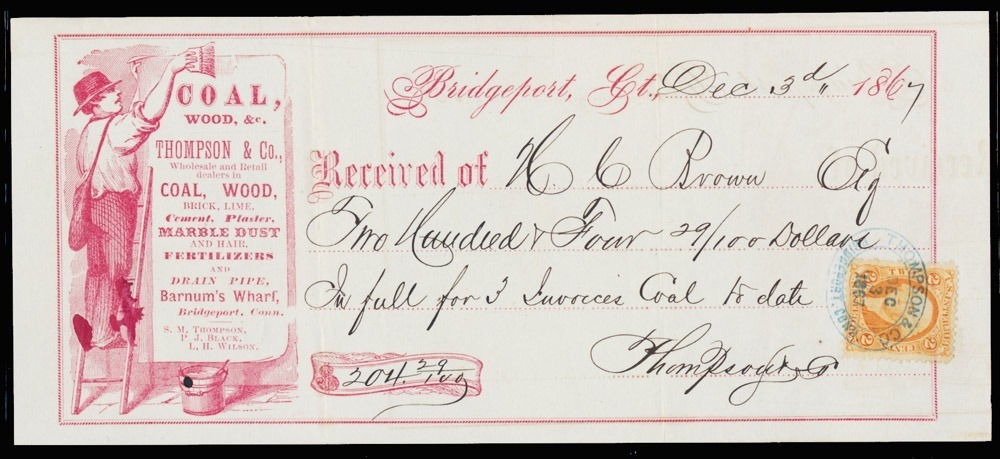 COAL,
WOOD, &c.
THOMPSON & Co.,
Wholesale and Retail
dealers in
COAL, WOOD,
BRICK, LIME,
Cement, Plaster,
MARBLE DUST
AND HAIR,
FERTILIZERS
AND
DRAIN PIPE,
Barnum's Wharf,
Bridgeport, Conn.
S. M. THOMPSON,
P. J. BLACK,
L. H. WILSON.
Bridgeport, Ct., Dec 3d 1867
Received of H C Brown Esq
Two Hundred & Four 29/100 Dollars
In full for 3 Invoices Coal to date
Thompson & Co
$ 204 29/100
THOMPSON & CO.
DEC
3
1867
BRIDGEPORT CONN.